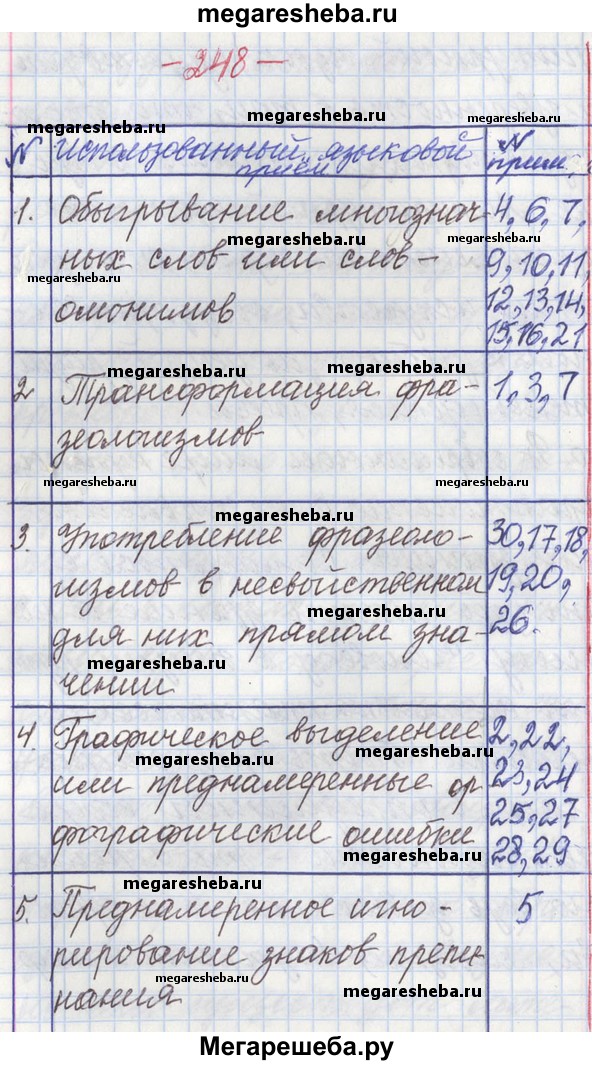 megaresheba.ru
- 248 -
megaresheba.ru
megaresheba.ru
megaresheba.ru
№ Использованный языковой приём № прим.
1. Обыгрывание многознач- 4, 6, 7,
megaresheba.ru
ных слов или слов - 9, 10, 11,
megaresheba.ru
megaresheba.ru
омонимов 12, 13, 14,
15, 16, 21
megaresheba.ru
2 Трансформация фра- 1, 3, 7
megaresheba.ru
зеологизмов
megaresheba.ru
megaresheba.ru
megaresheba.ru
3. Употребление фразеоло- 30, 17, 18,
гизмов в несвойственном 19, 20,
megaresheba.ru
для них прямом зна- 26.
megaresheba.ru
чении
4. Графическое выделение 2, 22,
megaresheba.ru
или преднамеренные ор 23, 24
фографические ошибки 25, 27
megaresheba.ru
28, 29
megaresheba.ru
5. Преднамеренное игно- 5
рирование знаков препи
megaresheba.ru
нания
megaresheba.ru
Мегарешеба.ру